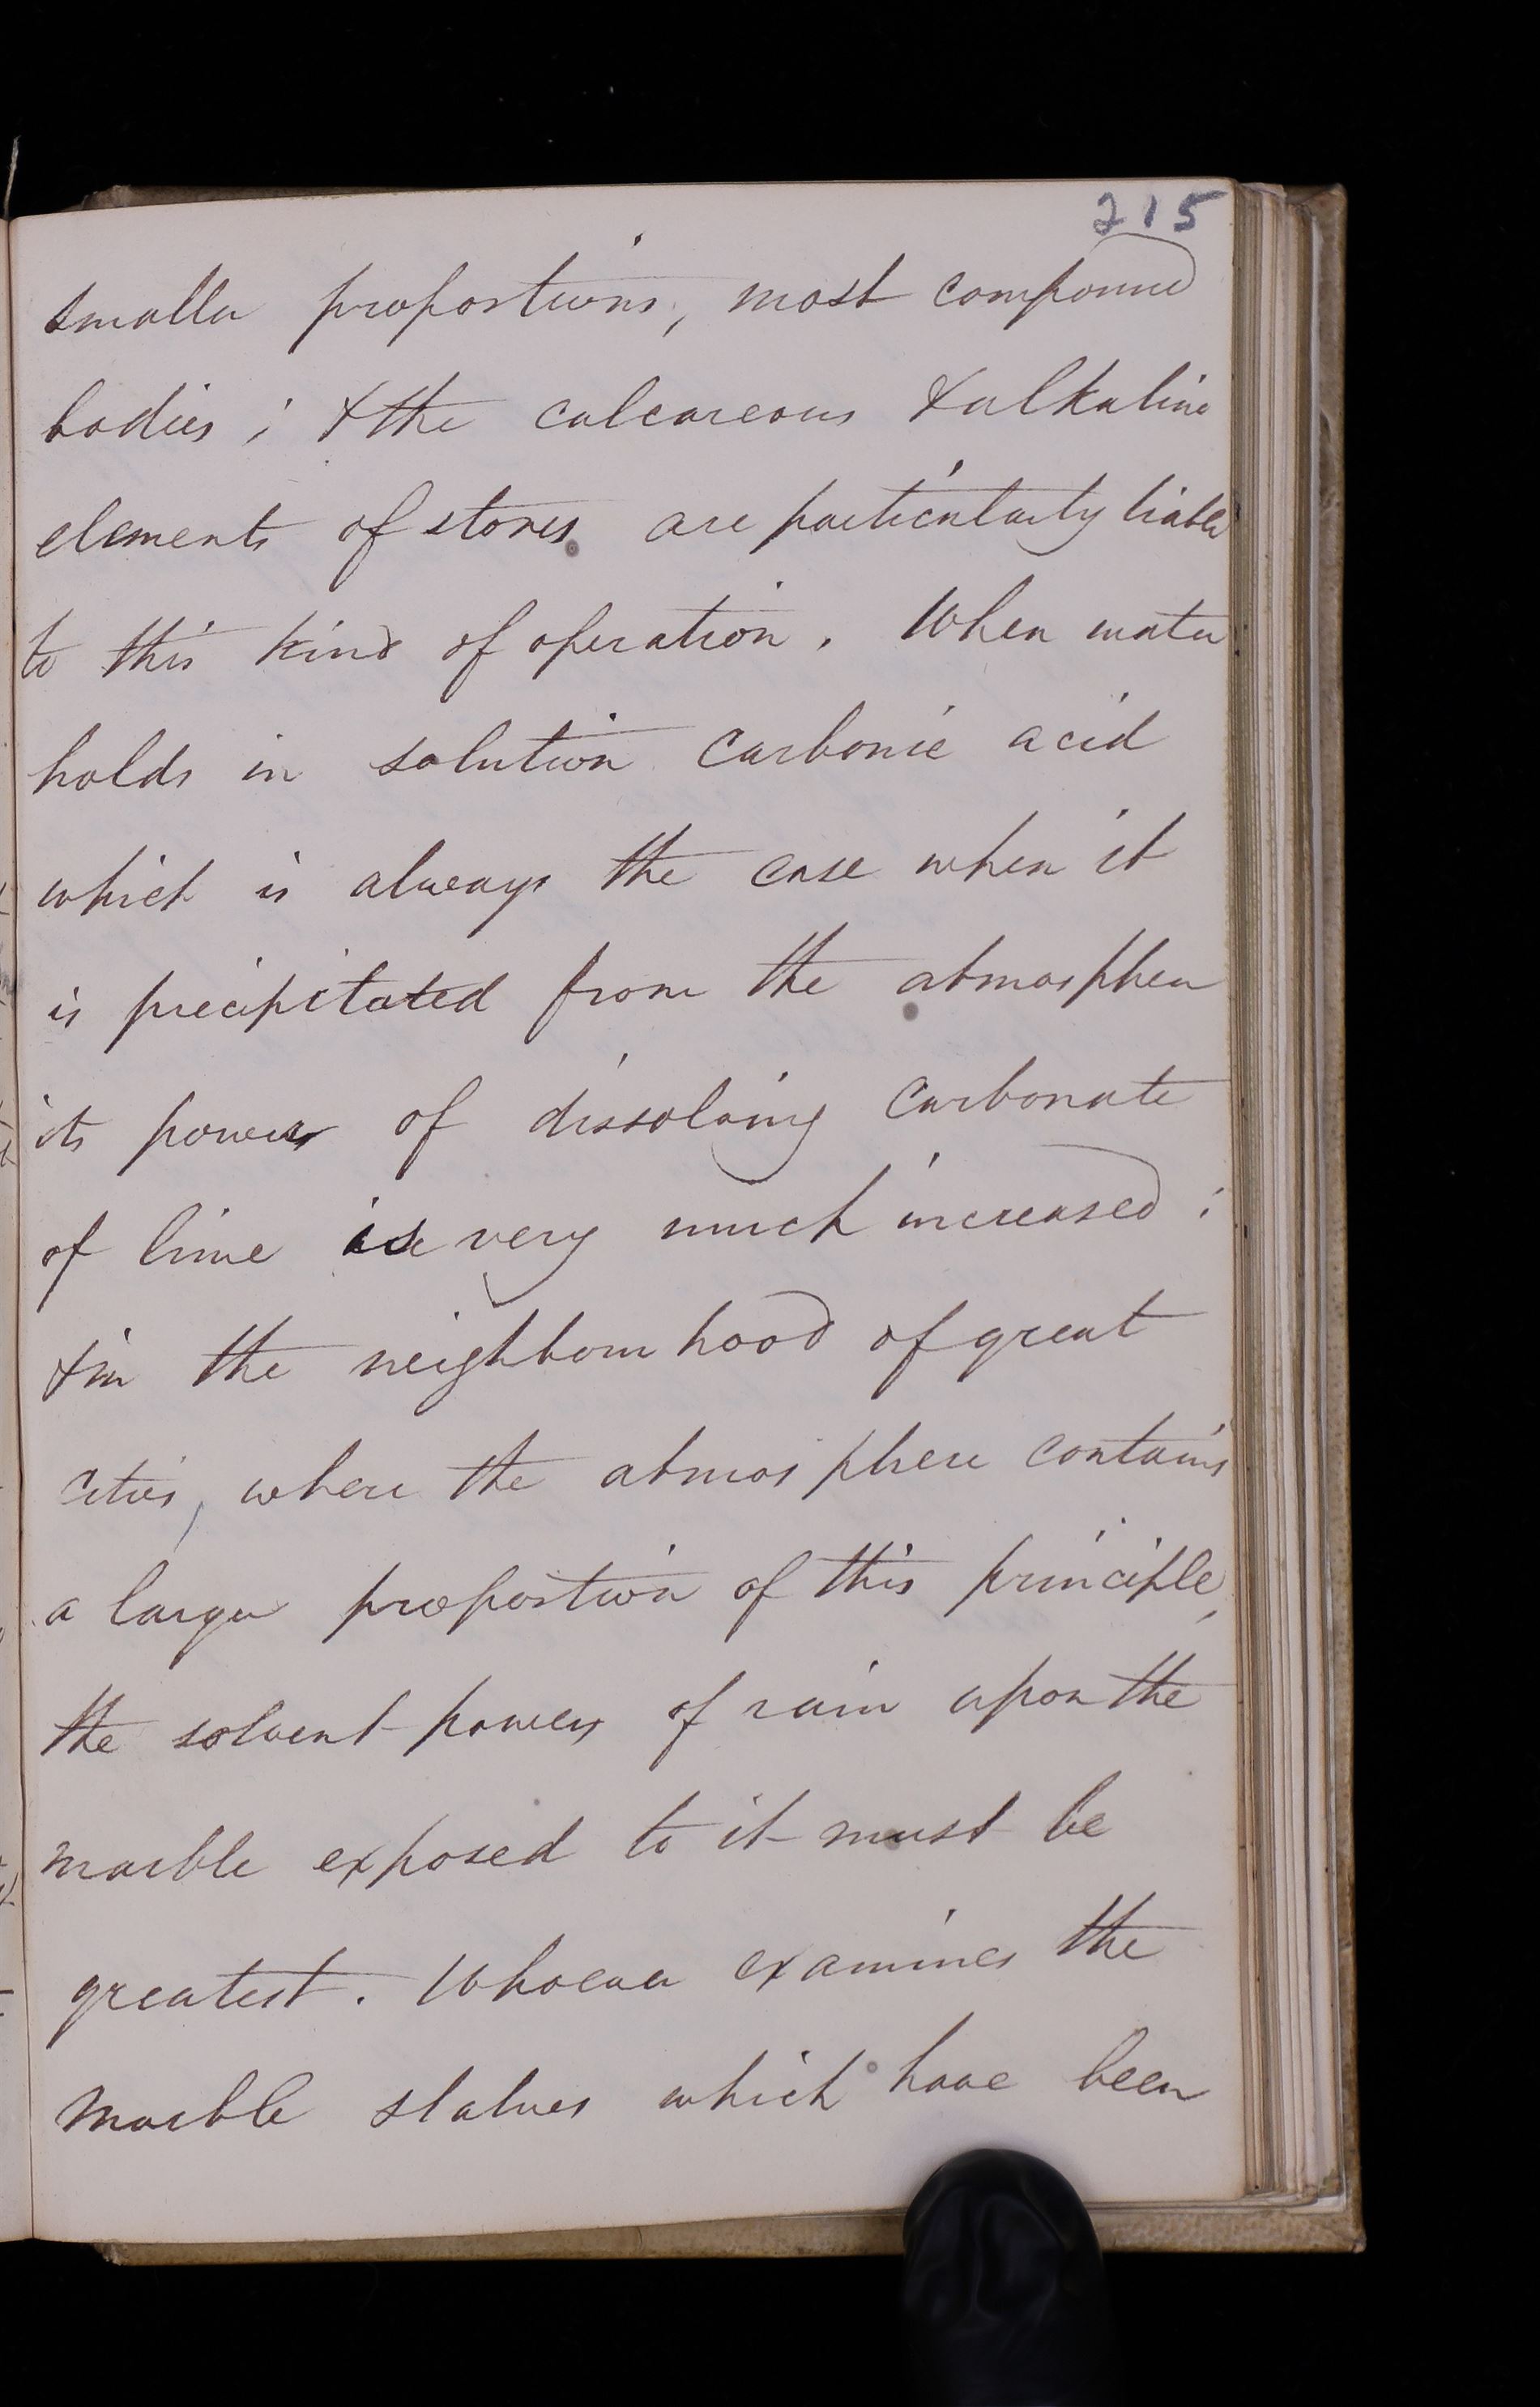 215
smaller proportions, most compound
bodies; & the calcareous & alkaline
elements of stones are particularly liable
to this kind of operation. When water
holds in solution carbonic acid
which is always the case when it
is precipitated from the atmosphere
its power of dissolving carbonate
of lime is very much increased;
& in the neighbourhood of great
cities, where the atmosphere contains
a larger proportion of this principle,
the solvent powers of rain upon the
marble exposed to it must be
greatest. Whoever examines the
marble statues which have been